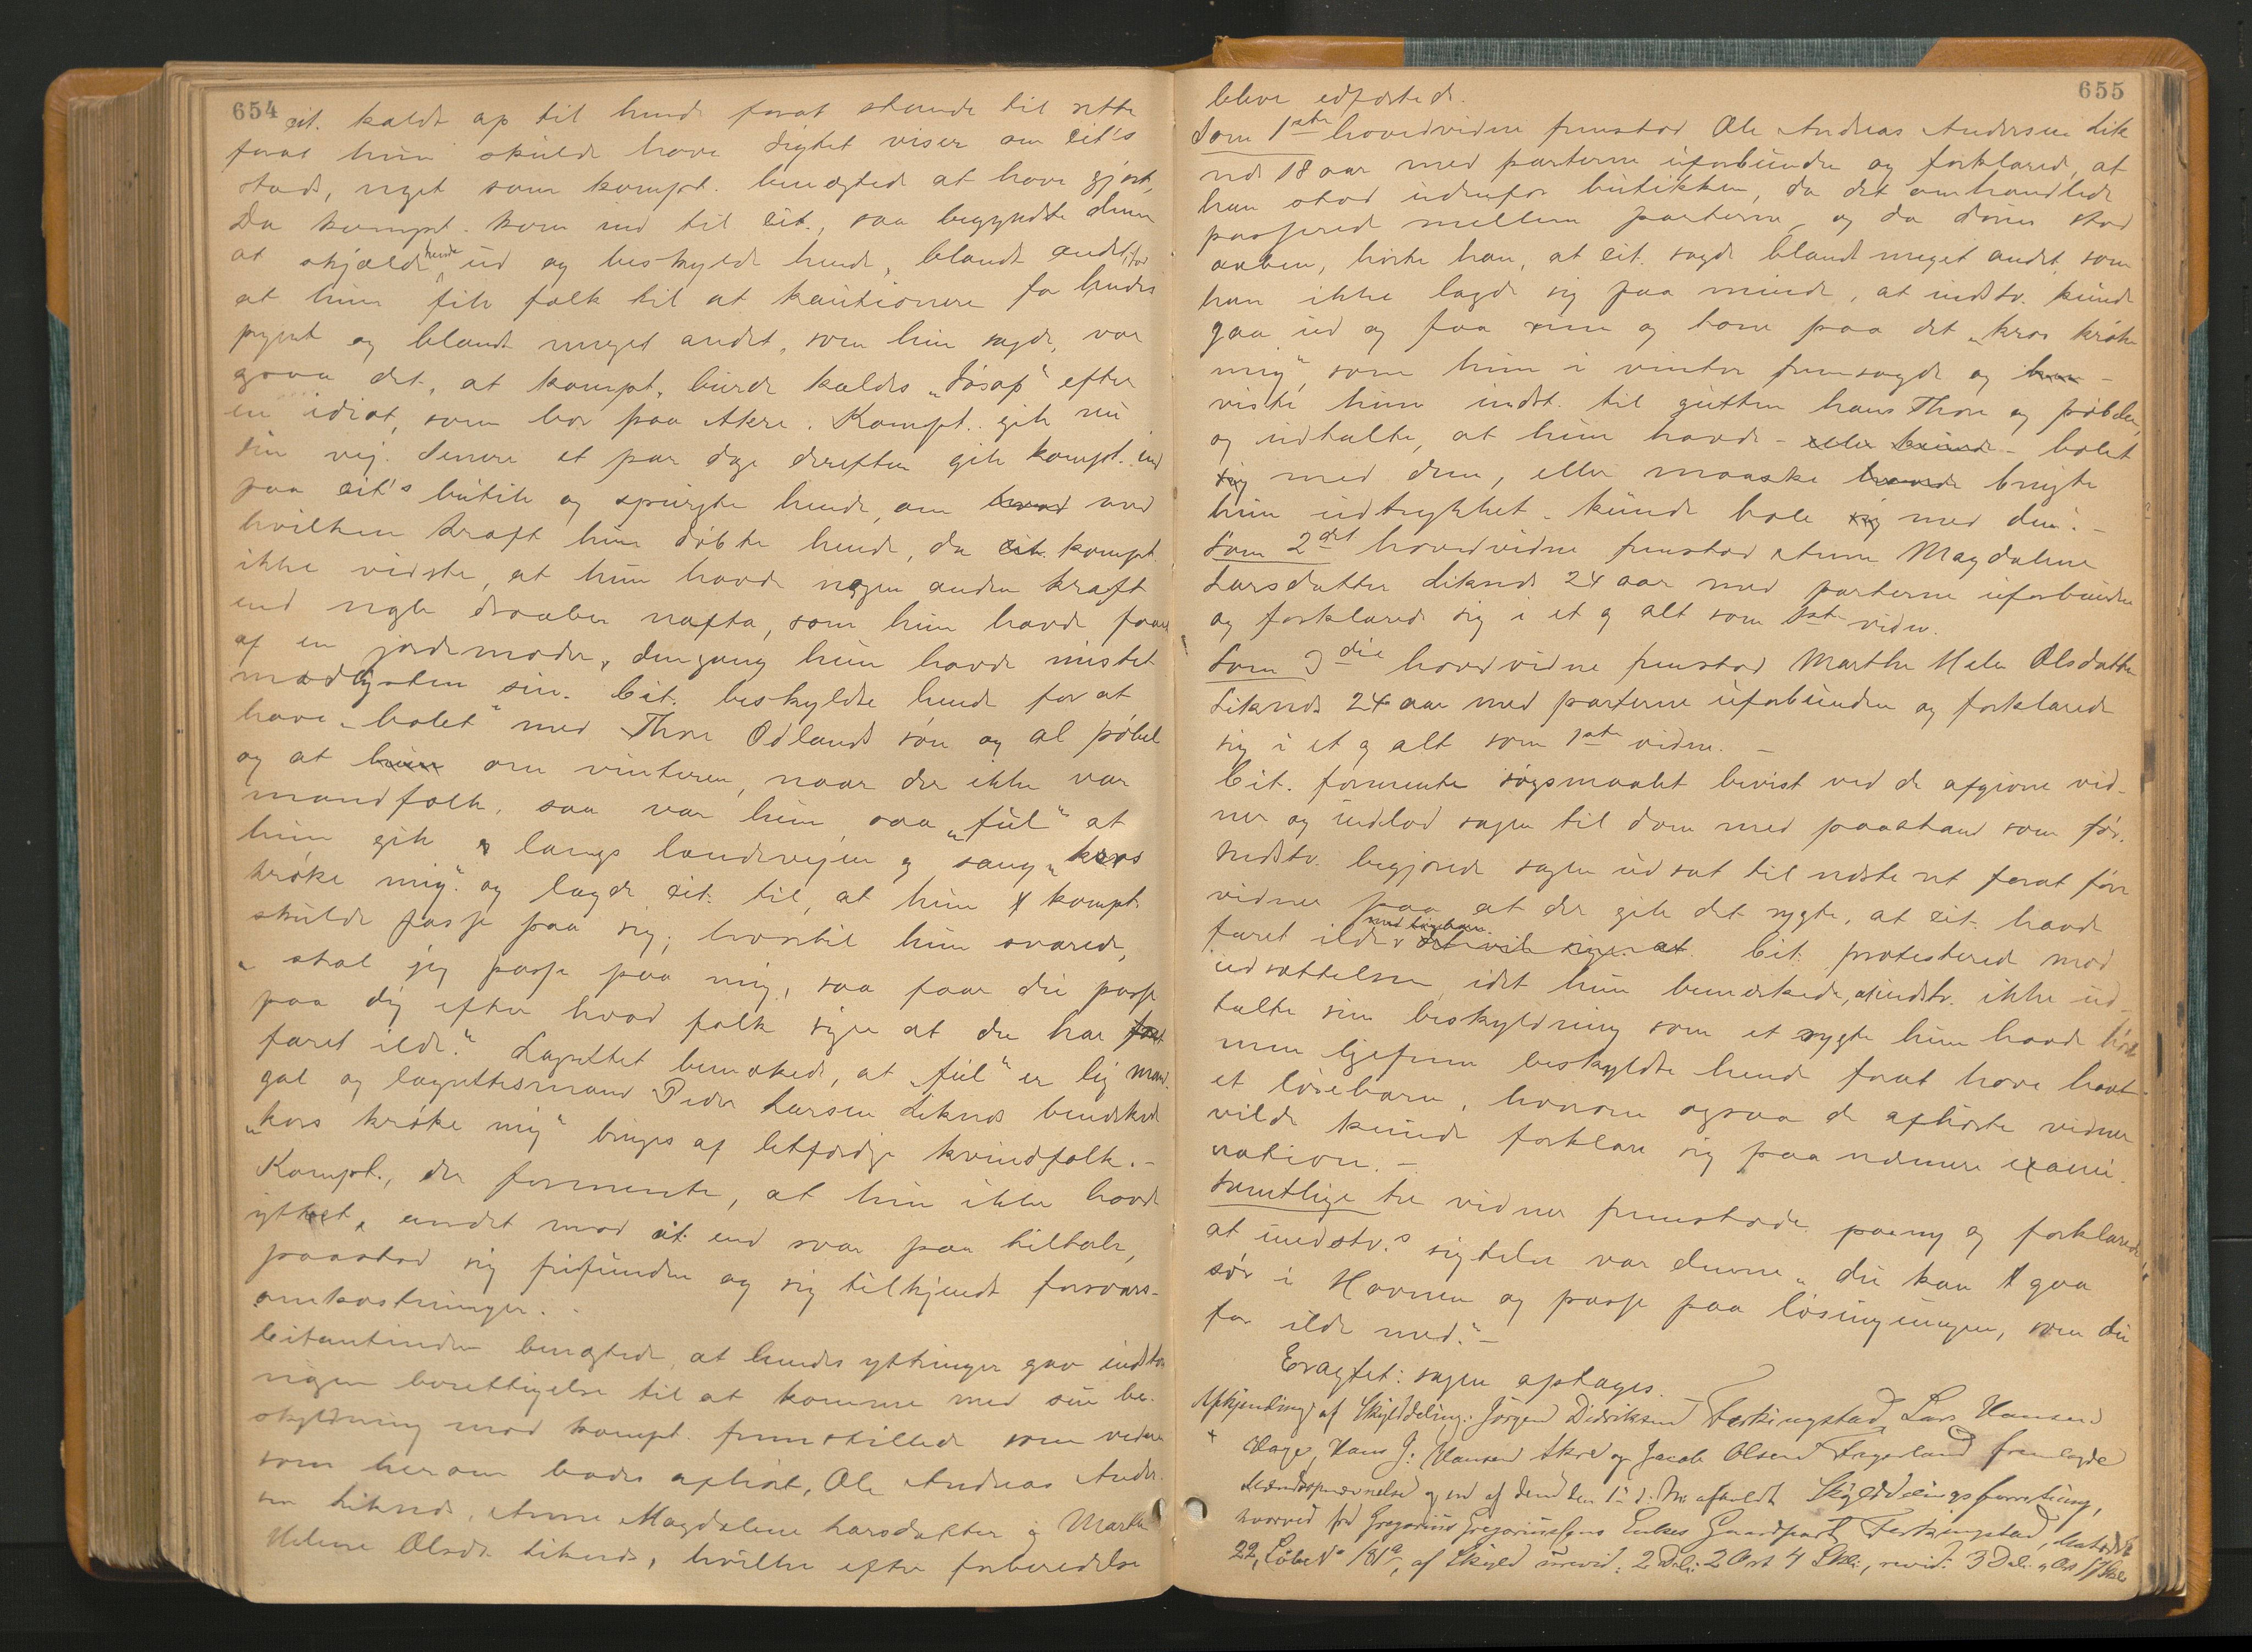 654
cit. kaldt op til hende forat stande til rette
forat hun skulde have digtet viser om cit's
stads, noget som kompt. benægtede at have gjort,
Da kompt. kom ind til cit., saa begyndte denne
at skjælde hende ud og beskylde hende, blandt andet, for
at hun fik folk til at kautionere for hendes
pynt og blandt meget andet, som hun sagde, var
ogsaa det, at kompt. burde kaldes „Jósap“ efter
en idiot, som bor paa Akre. Kompt. gik nu
sin vej. Senere et par dage derefter gik kompt. ind
paa cit's butik og spurgte hende, om hvad ved
hvilken kraft hun döbte hende, da cit. kompt.
ikke vidste, at hun havde nogen anden kraft
end nogle draaber nafta, som hun havde faaet
af en jordemoder, dengang hun havde mistet
madlysten sin. Cit. beskyldte hende for at
have „bolet“ med Thore Odlands sön og al pöbel
og at hun om vinteren, naar der ikke var
mandfolk, saa var hun saa „ful“ at
hun gik langs landevejen og sang „kors
kröke mig“ og lagde cit. til, at hun kompt.
skulde passe paa sig; hvortil hun svarede,
„skal jeg passe paa mig, saa faar du passe
paa dig efter hvad folk siger at du har fort
faret ilde.“ Lagrettet bemærkede, at „ful“ er lig mand-
gal og lagrettesmand Peder Larsen Liknes bemærkede
„kors kröke mig“ bruges af letfærdige kvindfolk. –
Kompt., der formente, at hun ikke havde
yttret andet mod cit. end svar paa tiltale,
paastod sig frifunden og sig tilkjendt forsvars-
omkostninger. –
Citantinden benægtede, at hendes yttringer gav indstv.
nogen berettigelse til at komme med sin be-
skyldning mod kompt. fremstillede som vidner
som herom bades afhört, Ole Andreas Ander-
sen Liknes, Anne Magdalene Larsdatter og Marthe
Helene Olsdr. Liknes, hvilke efter forberedelse
655
bleve edfæstede.
Som 1ste hovedvidne fremstod Ole Andreas Andersen Lik
nes 18 aar med parterne uforbunden og forklarede, at
han stod udenfor butikken, da det omhandlede
passerede mellem parterne, og da dören stod
aaben, hörte han, at cit. sagde blandt meget andet, som
han ikke lagde sig paa minde, at indstv. kunde
gaa ud og faa sine og bare paa det „kros kröke
mig“, som hun i vinter fremsagde og han –
viste hun indst. til gutten hans Thore og pöbelen,
og udtalte, at hun havde – eller kunde – bolet
sig med dem, eller maaske havde brugte
hun udtrykket – kunde bole sig med dem. –
Som 2det hovedvidne fremstod Anne Magdalene
Larsdatter Liknes 24 aar med parterne uforbunden
og forklarede sig i et og alt som 1ste vidne.
Som 3die hovedvidne fremstod Marthe Helene Olsdatter
Liknes 24 aar med parterne uforbunden og forklarede
sig i et og alt som 1ste vidne. –
Cit. formente sögsmaalet bevist ved de afgivne vid-
ner og indlod sagen til dom med paastand som för.
Indstv. begjærede sagen udsat til næste ret forat före
vidner paa at der gik det rygte, at cit. havde
faret ilde med lösebarn. det vil sige at Cit. protesterede mod
udsættelsen, idet hun bemærkede, at indstv. ikke ud-
talte sin beskyldning som et rygte hun havde hört
men ligefrem beskyldte hende forat have havt
et lösebarn, hvorom ogsaa de afhörte vidner
vilde kunde forklare sig paa nærmere exami-
nation. –
Samtlige tre vidner fremstode paany og forklarede,
at indstv.s sigtelse var denne „du kan gaa
sör i Havnen og passe paa lösungungen, som du
for ilde med.“ –
Eragtet: sagen optages. –
Afkjending af Skylddeling: Jörgen Didriksen Ferkingstad, Lars Hansen
Hage, Hans J. Hansen Skre og Jacob Olsen Fagerland fremlagde
Lensmandsopnævnelse og en af dem den 1ste d. M. afholdt Skylddelingsforretning,
hvorved fra Gregorius Gregoriussens Enkes Gaardpart Ferkingstad, Matr. N.
22, Löbe N° 181a, af Skyld urevid. 2 Dal. 2 Ort 4 Skl., revid. 3 Dal. „ Ort 17 Skl.